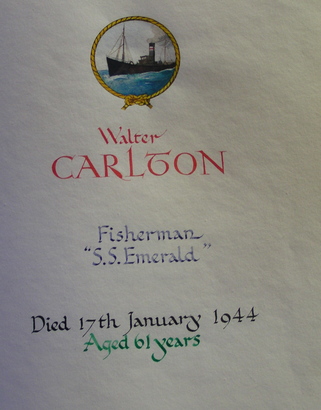 Walter
CARLTON
Fisherman
"S.S. Emerald"
Died 17th January 1944
Aged 61 years